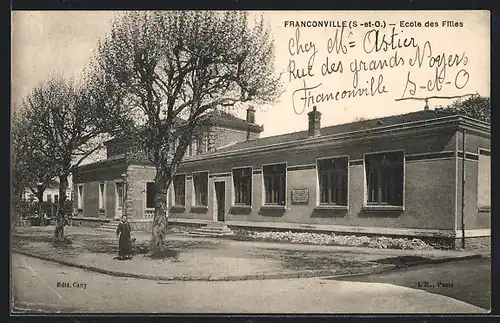 FRANCONVILLE (S-et-O.) — Ecole des Filles
Chez Mr Astier
Rue des grands Noyers
Franconville S-et-O
Edit. Cany
L'H., Paris